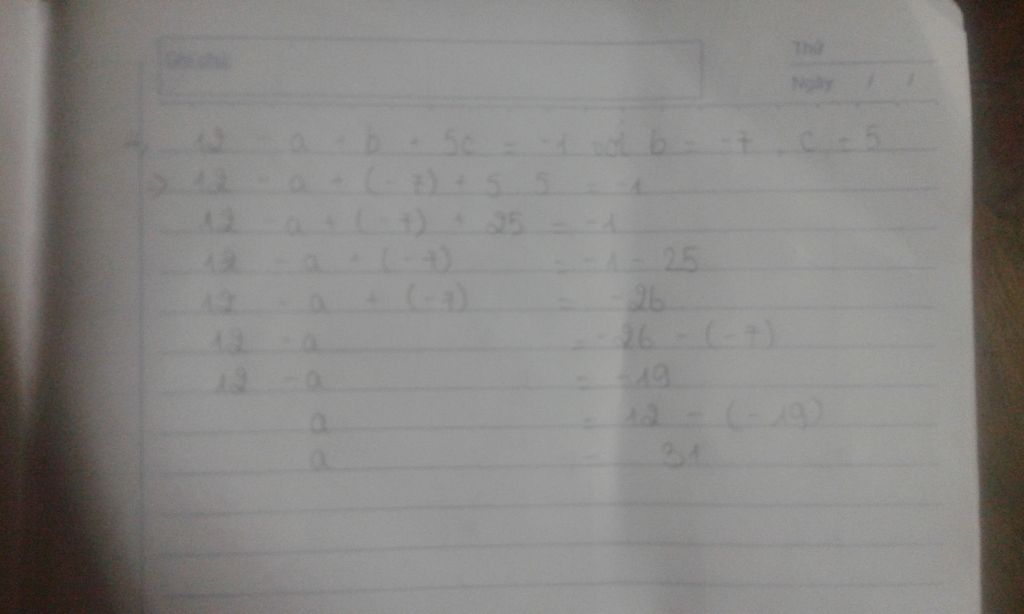 Ghi chú:
Thứ
Ngày / /
12 - a + b + 5c = -1 với b = -7, c = 5
=> 12 - a + (-7) + 5 . 5 = -1
12 - a + (-7) + 25 = -1
12 - a + (-7) = -1 - 25
12 - a + (-7) = -26
12 - a = -26 - (-7)
12 - a = -19
a = 12 - (-19)
a = 31